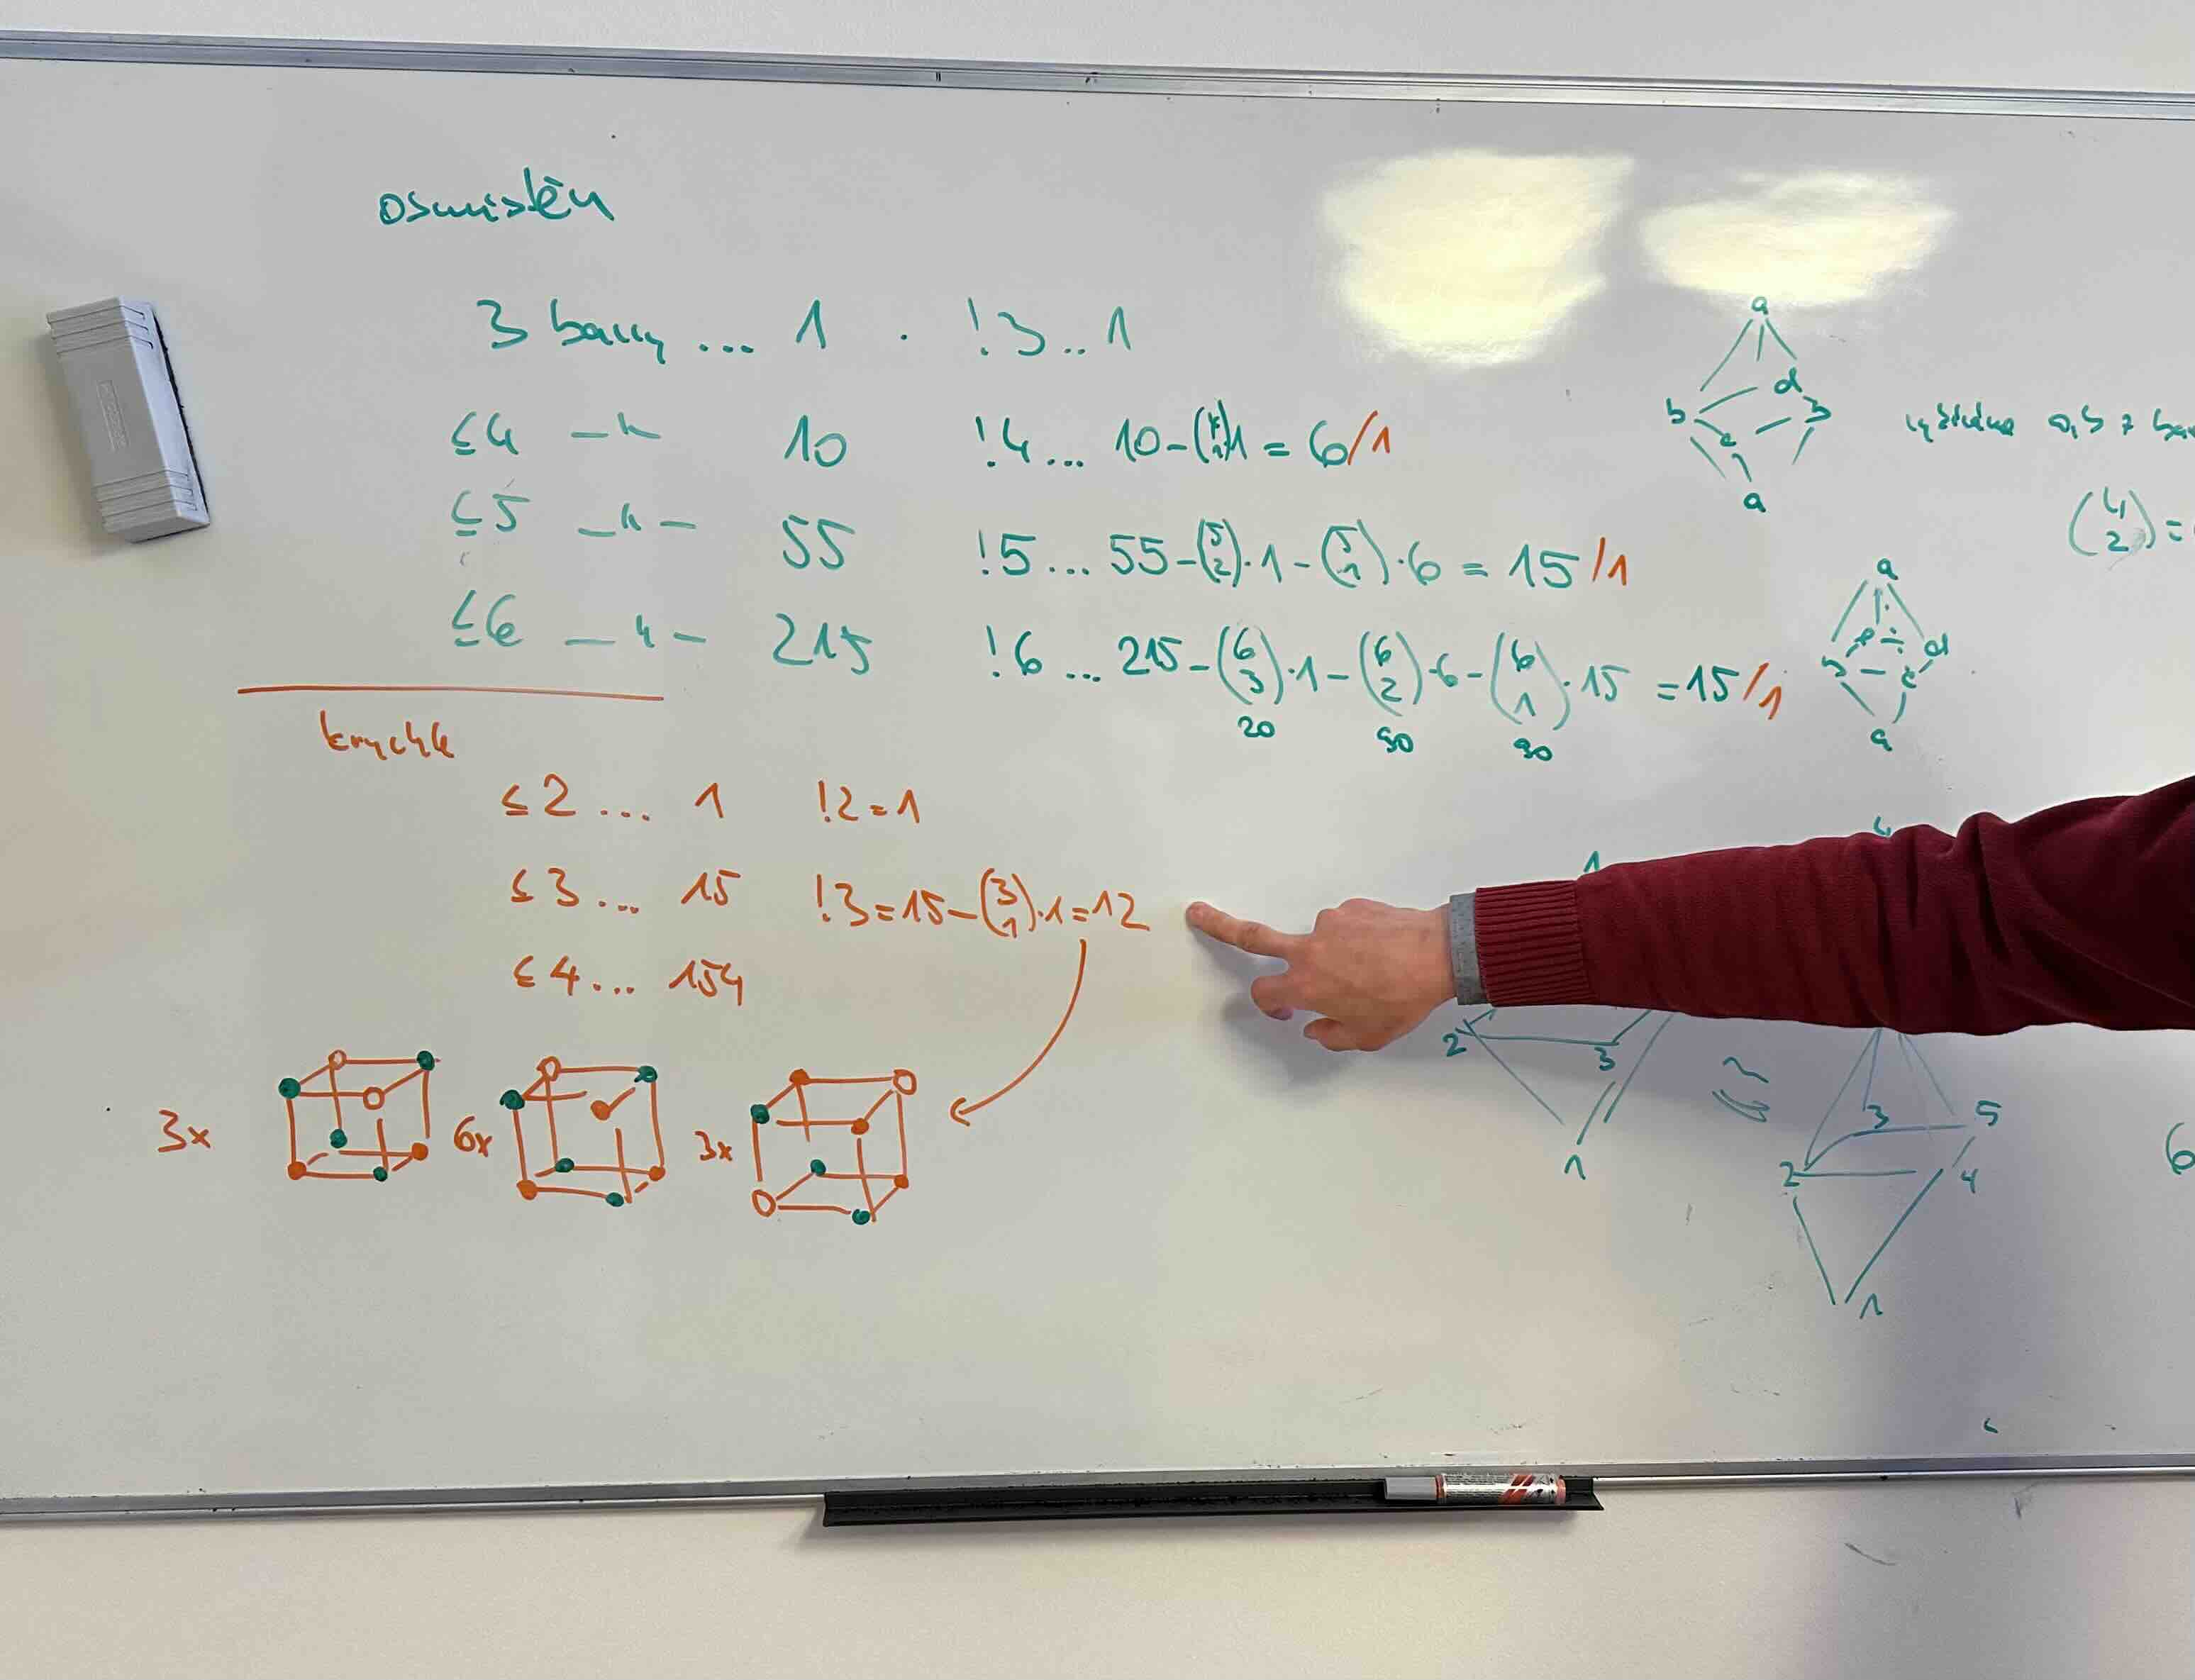 osmistěn
3 barvy ... 1 . !3 .. 1
≤4 —〃— 10 !4 ... 10-(4 1)1 = 6/1
≤5 —〃— 55 !5 ... 55-(5 2)·1-(5 1)·6 = 15/1
≤6 —〃— 215 !6 ... 215-(6 3)·1-(6 2)·6-(6 1)·15 = 15/1
20 90 90
krychle
≤2 ... 1 !2=1
≤3 ... 15 !3=15-(3 1)·1=12
≤4 ... 154
3x 6x 3x
a
d
b b
c
a
a,b z
(4 2)=
a
e d
b c
a
1
2 3
1
≈
3 5
2 4
1
6